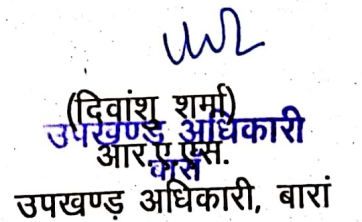 (दिवांशु शर्मा)
उपखण्ड अधिकारी
आर.ए.एस.
बारां
उपखण्ड़ अधिकारी, बारां